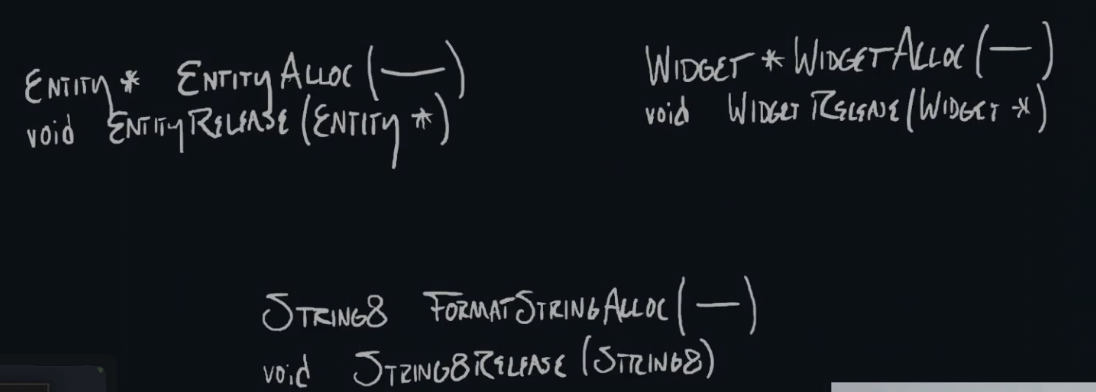 Entity * EntityAlloc(—)
void EntityRelease(Entity *)
Widget * WidgetAlloc(—)
void WidgetRelease(Widget *)
String8 FormatStringAlloc(—)
void String8Release(String8)